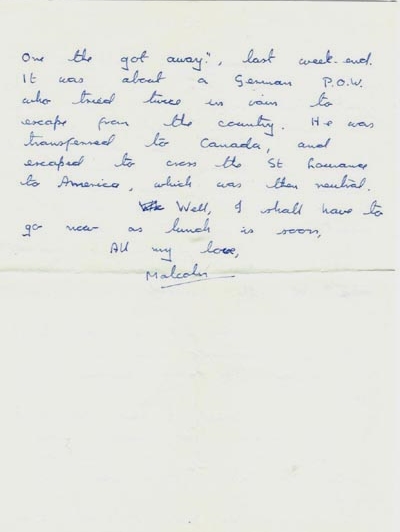 One the got away.", last week-end.
It was about a German P.O.W.
who tried twice in vain to
escape from the country. He was
transferred to Canada, and
escaped to cross the St Lawrance
to America, which was then neutral.
Well, I shall have to
go now as lunch is soon,
All my love,
Malcolm